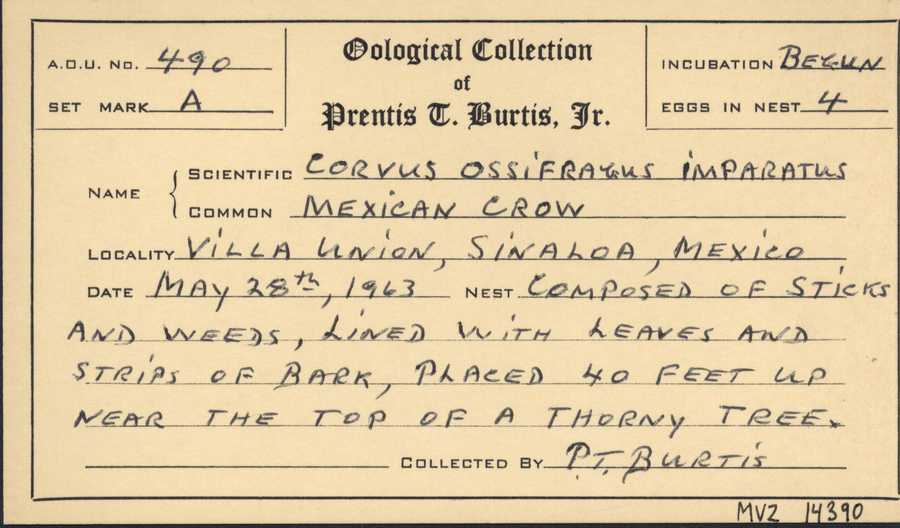 Oological Collection
of
Prentis T. Burtis, Jr.
A.O.U. No. 490
SET MARK A
INCUBATION BEGUN
EGGS IN NEST 4
NAME
SCIENTIFIC CORVUS OSSIFRAGUS IMPARATUS
COMMON MEXICAN CROW
LOCALITY VILLA UNION, SINALOA, MEXICO
DATE MAY 28th, 1963 NEST COMPOSED OF STICKS
AND WEEDS, LINED WITH LEAVES AND
STRIPS OF BARK, PLACED 40 FEET UP
NEAR THE TOP OF A THORNY TREE.
COLLECTED BY P.T. BURTIS
MVZ 14390